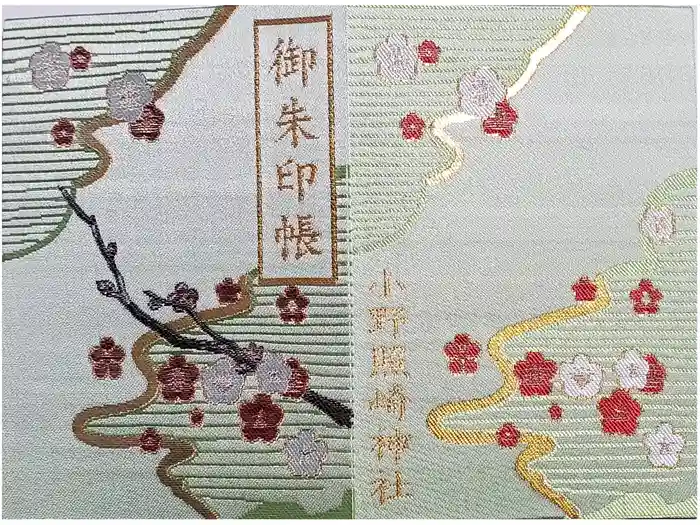 御朱印帳
小野照崎神社